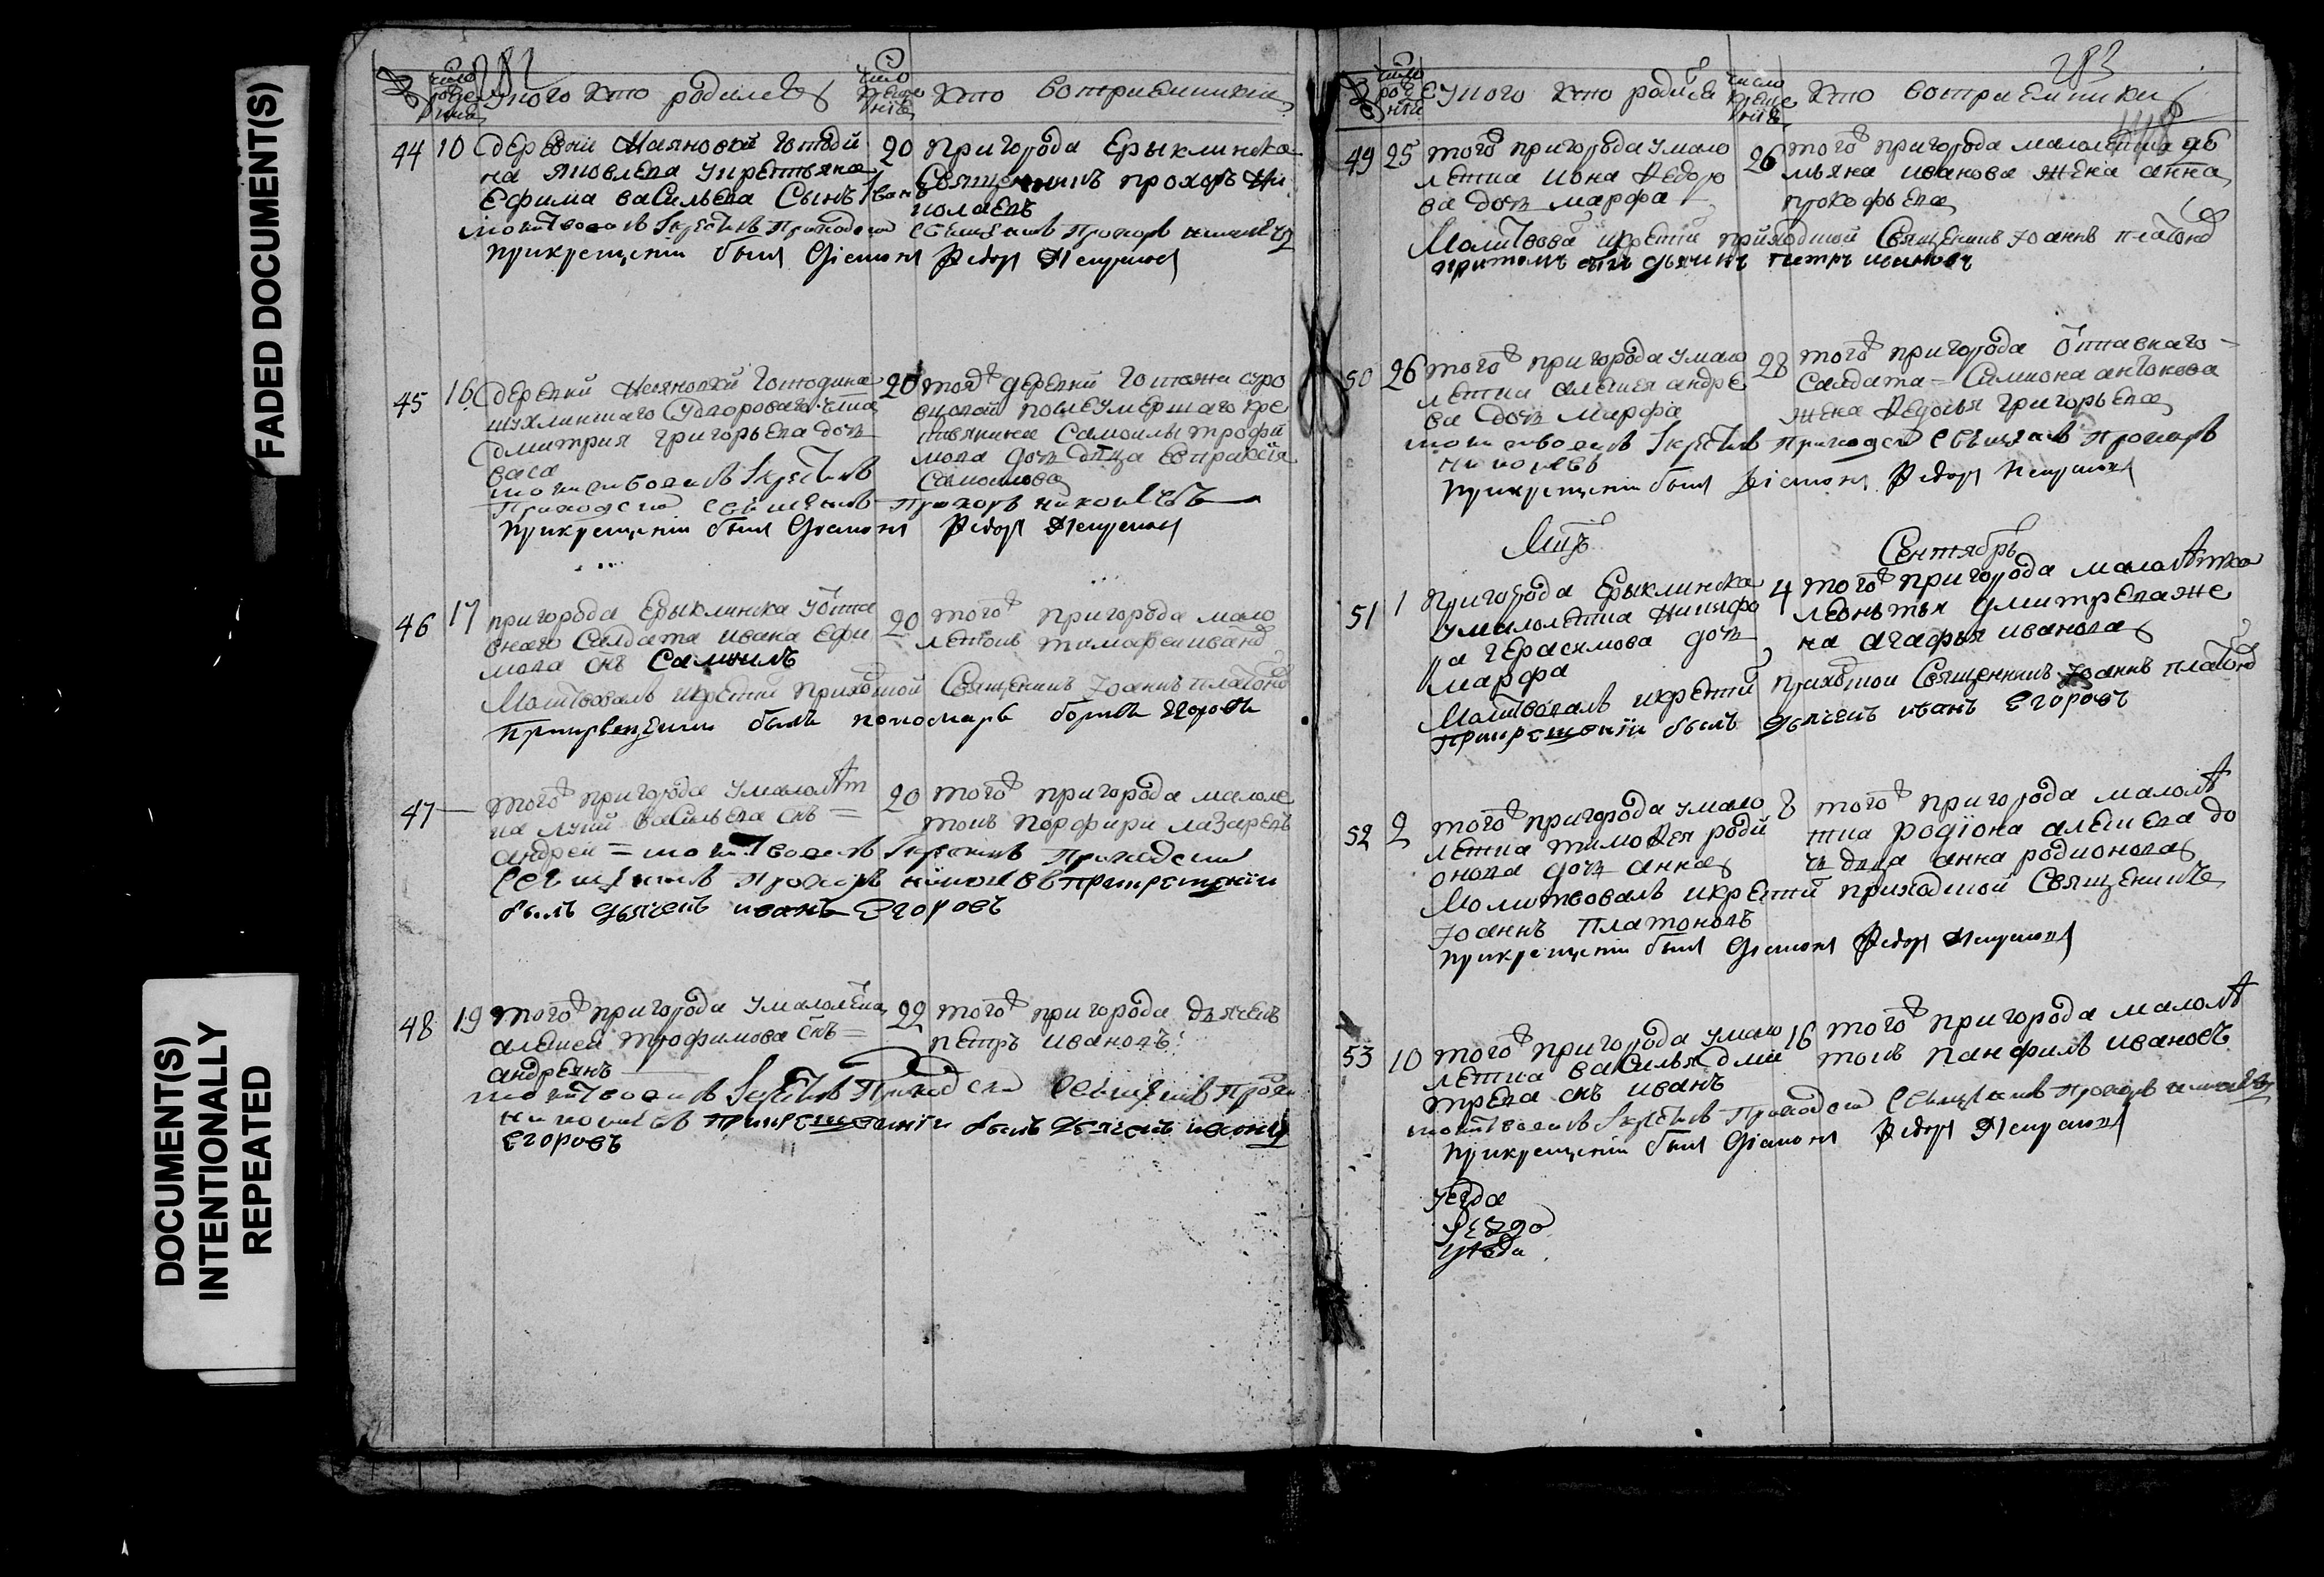 FADED DOCUMENT(S)
DOCUMENT(S)
INTENTIONALLY
REPEATED
282
число рожде ния
У кого кто родился
число креще нія
кто восприемники
44 10 деревни Наяновки господи
на Яковлева у крестьяна
Ефима Васильева сынъ Иванъ
20 пригорода Ерыклинска
священникъ Прохоръ Ни
колаевъ
молитвовалъ и крестилъ приходской священникъ Прохоръ Николаевъ
при крещении былъ диаконъ Федоръ
45 16 деревни Наяновки господина
Дмитрия Григорьева дочь
Васа
20 тояжъ деревни госпожи
после умершаго кре
стьянина Самоилы Трофи
мова дочь девица Евпраксія
Самоилова
молитвовалъ и крестилъ
приходской священникъ Прохоръ Николаевъ
при крещении былъ диаконъ Федоръ
46 17 пригорода Ерыклинска у отста
внаго салдата Ивана Ефи
мова снъ Самоилъ
20 того пригорода мало
летокъ Тимофеи Иванов
Молитвовалъ и крестил приходской священникъ Іоаннъ Платонов
при крещении былъ пономарь Борисъ Егоровъ
47 — того пригорода у малолѣт
ка Луки Васильева снъ =
Андреи =
20 того пригорода малоле
токъ Порфири Лазаревъ
молитвовалъ и крестилъ приходской
священникъ Прохоръ Николаевъ при крещении
былъ дьячекъ иванъ Егоровъ
48 19 того пригорода у малолетка
алексея Трофимова снъ =
андреянъ
22 того пригорода дьячекъ
петръ ивановъ
молитвовалъ и крестилъ приходской священникъ Прохоръ
Николаевъ при крещении былъ дьячекъ иванъ
Егоровъ
283
число рож нія
У кого кто родился
число креще нія
кто восприемники
49 25 того пригорода у мало
летка иона Ѳедоро
ва дочь марфа
26 того пригорода малолетка
иванова жена анна
прокофьева
Молитвовал и крестил приходской священникъ Іоаннъ Платонов
при томъ былъ дьячекъ петръ ивановъ
50 26 того пригорода у мало
летка алексея андре
ева дочь марфа
28 того пригорода отставнаго
салдата = Симиона антонова
жена Ѳедосья григорьева
молитвовалъ и крестилъ приходской священникъ Прохоръ
Николаевъ
при крещении былъ диаконъ Федоръ
Мцъ Сентябрь
51 1 Пригорода Ерыклинска
у малолетка Никифо
ра герасимова дочь
марфа
4 того пригорода малолѣтка
леонтья дмитрева же
на агафья иванова
Молитвовалъ и крестил приходской священникъ Іоаннъ Платонов
при крещении былъ дьячекъ иванъ Егоровъ
52 2 того пригорода у мало
летка тимоѲея роди
онова дочь анна
8 того пригорода малолѣ
тка родіона алексева до
чь анна родионова
Молитвовалъ и крестил приходской священникъ
Іоаннъ Платоновъ
при крещении былъ диаконъ Федоръ
53 10 того пригорода у мало
летка василья дми
трева снъ иванъ
16 того пригорода малолѣ
токъ панфилъ ивановъ
молитвовалъ и крестилъ приходской священникъ Прохоръ Николаевъ
при крещении былъ диаконъ Федоръ